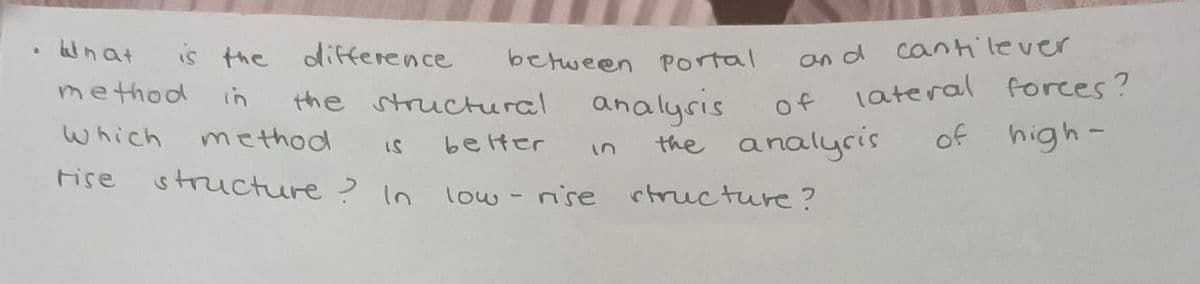 • What is the difference between portal and cantilever
method in the structural analysis of lateral forces?
which method is better in the analysis of high-
rise structure? In low-rise structure?